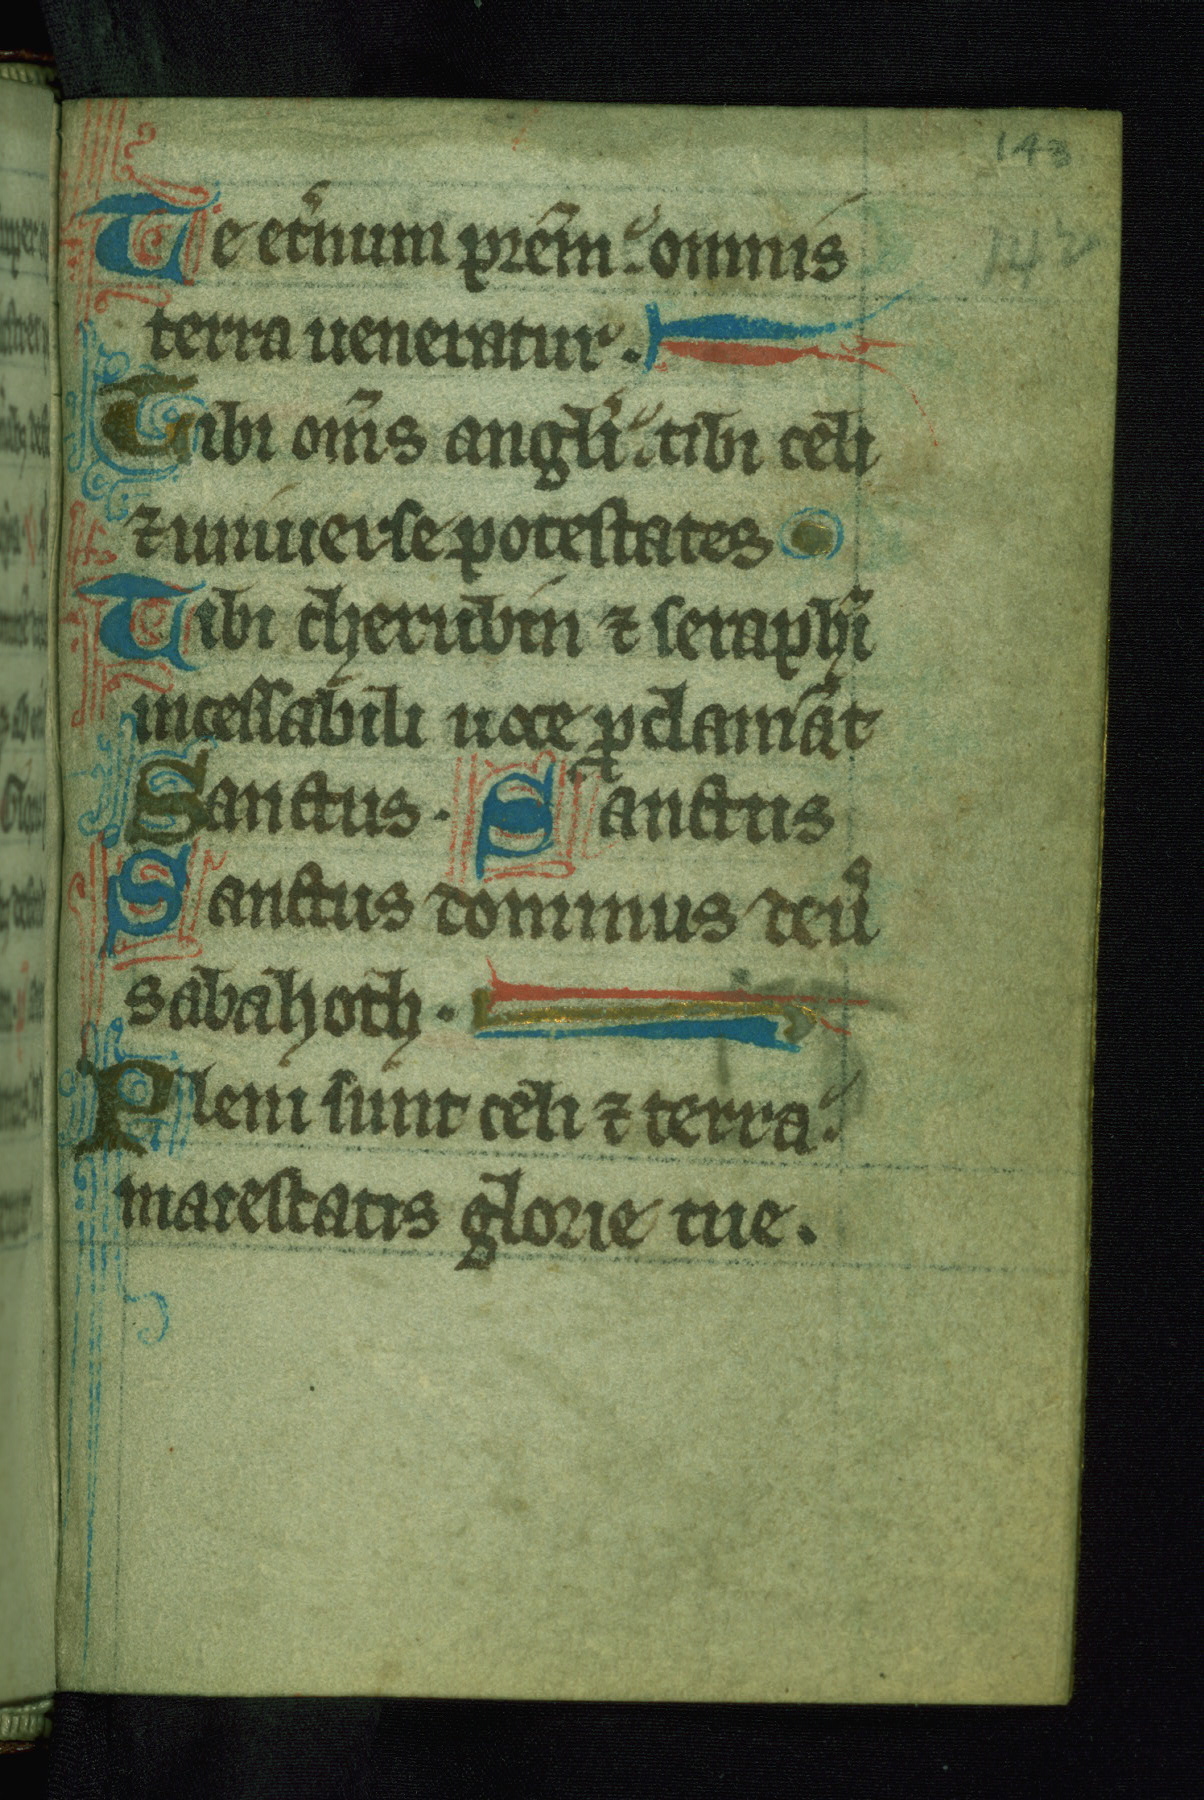 143
142
Te et̄num pr̄em omnis
terra ueneratur.
Tibi om̄s angl̄i tibi celi
⁊ uniuerse potestates
Tibi cherubin ⁊ seraph̄i
incessabili uoce ꝓclamāt
Sanctus. Sanctus
Sanctus dominus deus
sabahoth.
Pleni sunt celi ⁊ terra.
maiestatis glorie tue.